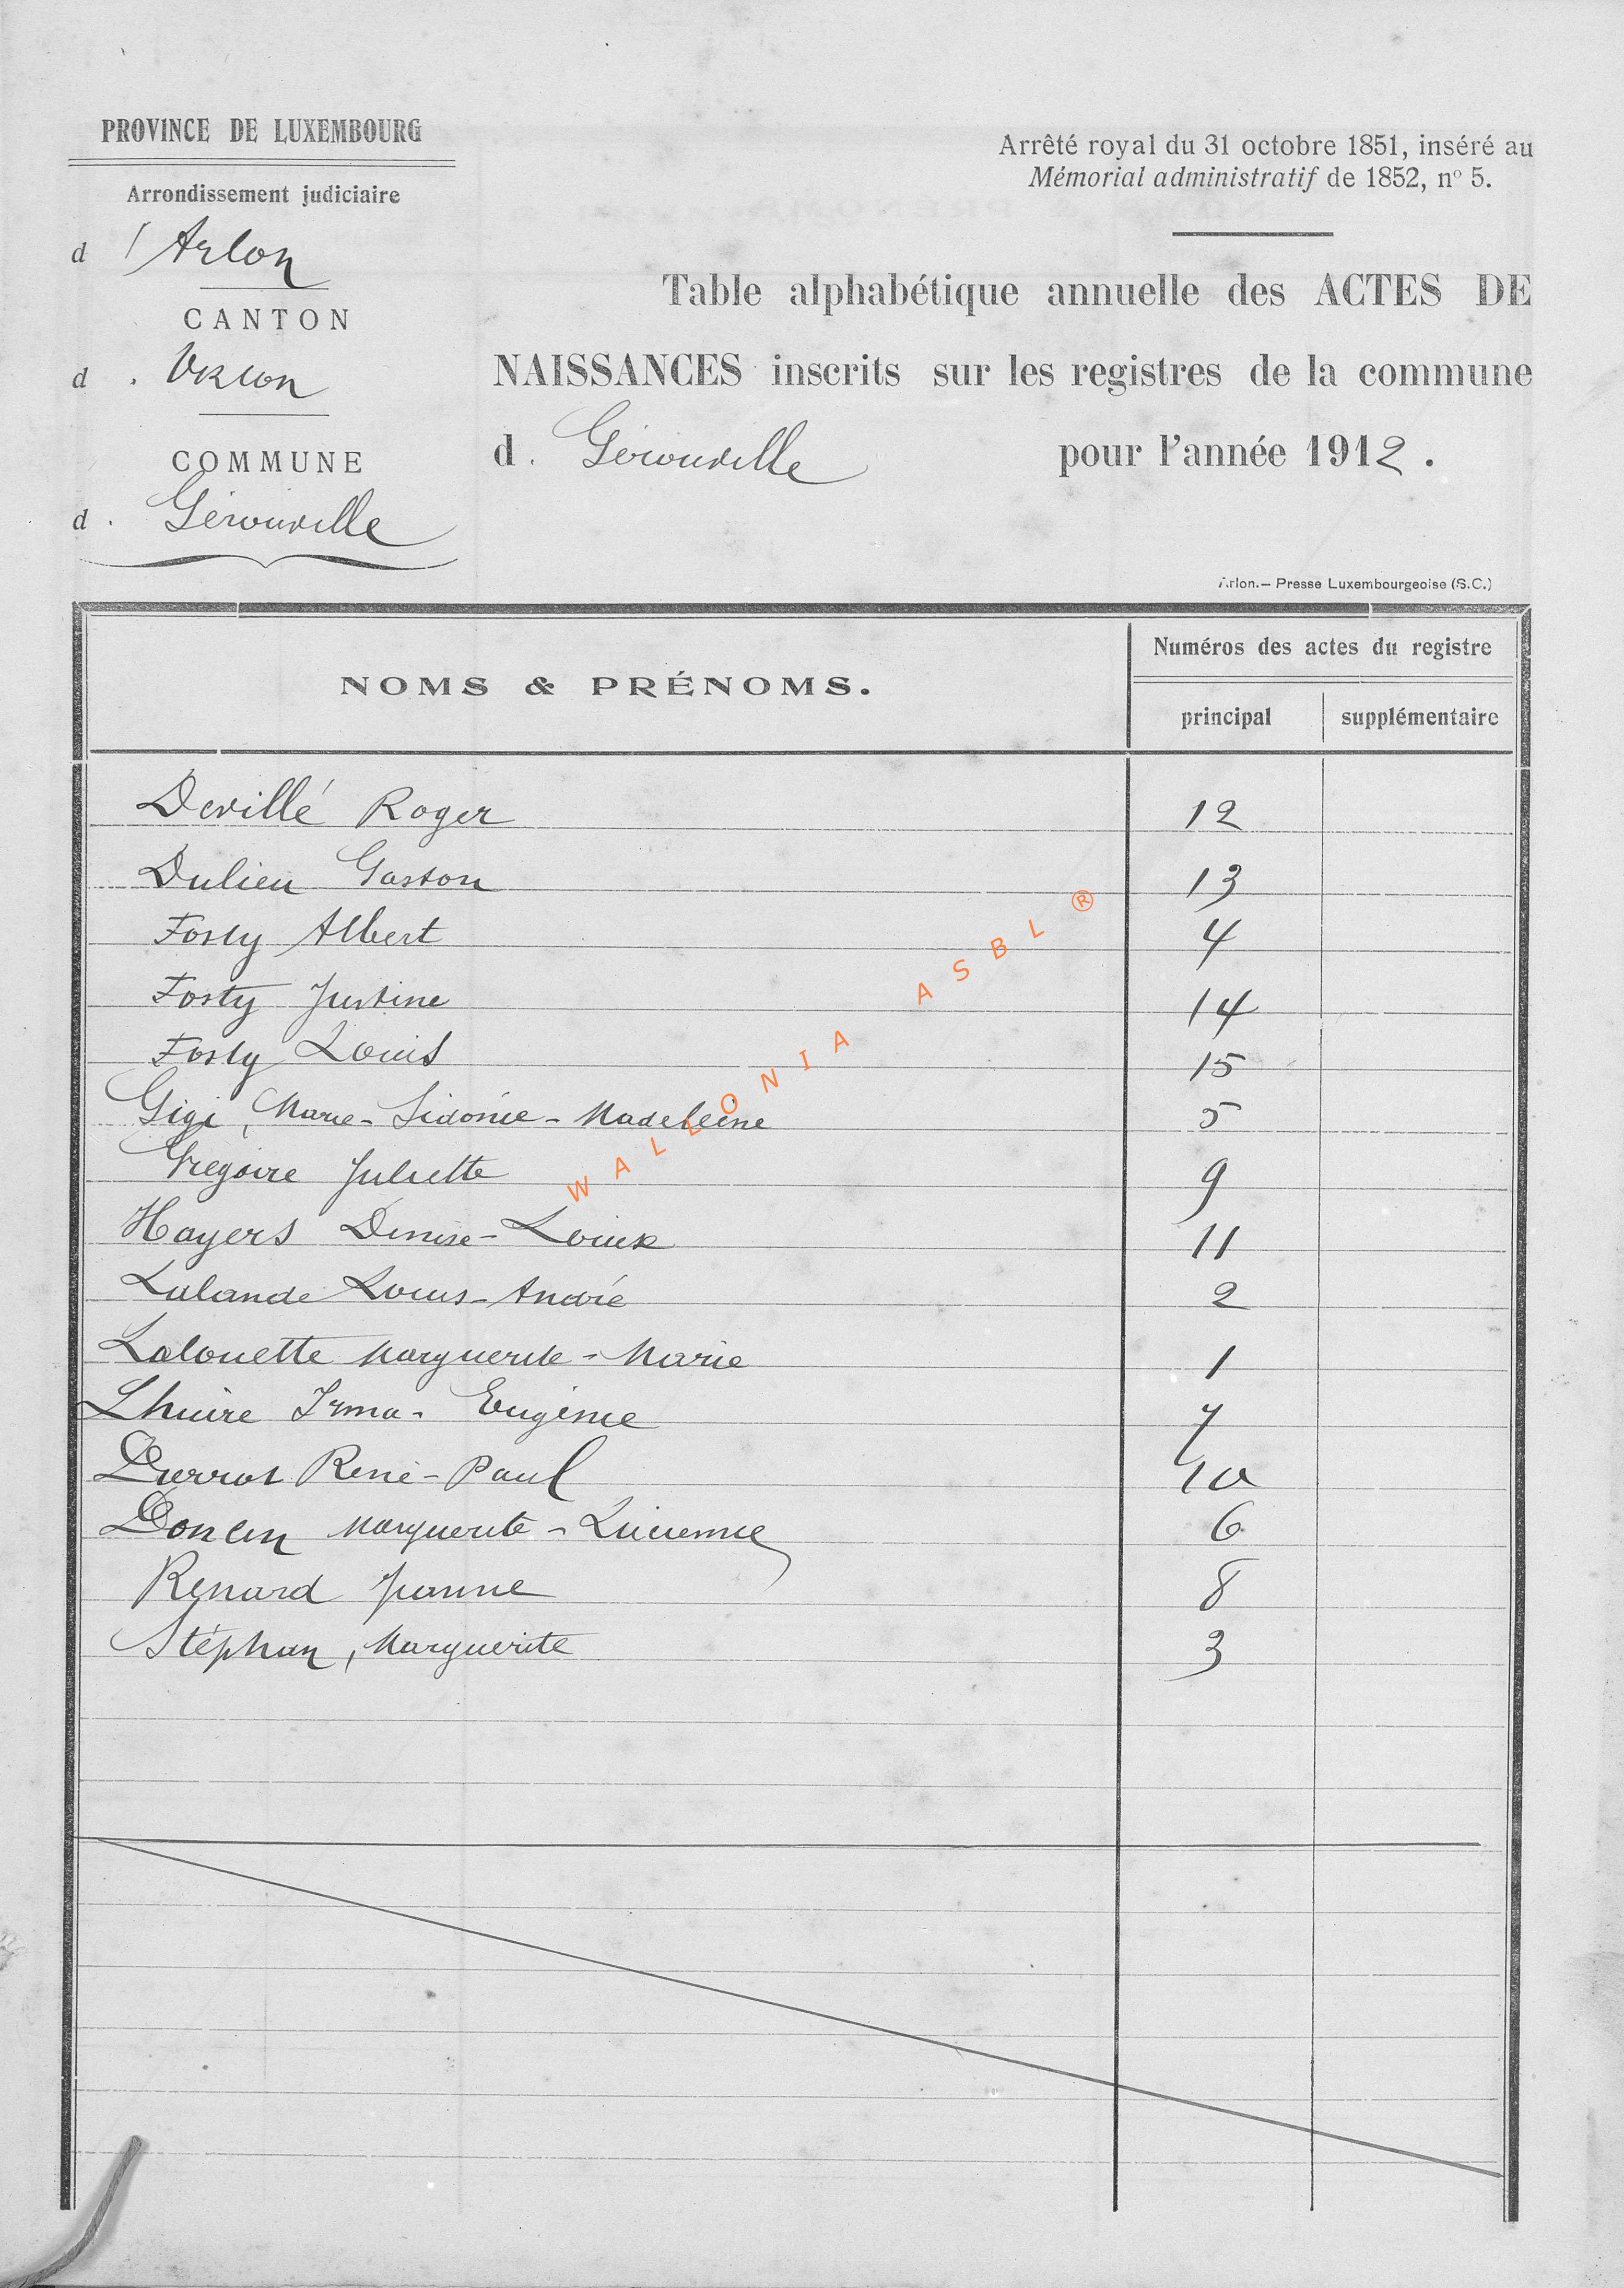 PROVINCE DE LUXEMBOURG
Arrondissement judiciaire
d'Arlon
CANTON
d. Virton
COMMUNE
d. Gérouville
Arrêté royal du 31 octobre 1851, inséré au
Mémorial administratif de 1852, n° 5.
Table alphabétique annuelle des ACTES DE
NAISSANCES inscrits sur les registres de la commune
d. Gérouville pour l'année 1912.
Arlon.— Presse Luxembourgeoise (S.C.)
NOMS & PRÉNOMS.
Numéros des actes du registre
principal supplémentaire
Devillé Roger 12
Dulieu Gaston 13
Fosty Albert 4
Fosty Justine 14
Fosty Louis 15
Gigi, Marie-Sidonie-Madeleine 5
Grégoire Juliette 9
Hayers Denise-Louise 11
Lalande Louis-André 2
Lalouette Marguerite-Marie 1
Lhuire Irma-Eugénie 7
René-Paul 10
Poncin Marguerite-Lucienne 6
Renard Jeanne 8
Stéphan, Marguerite 3
WALLONIA ASBL ®